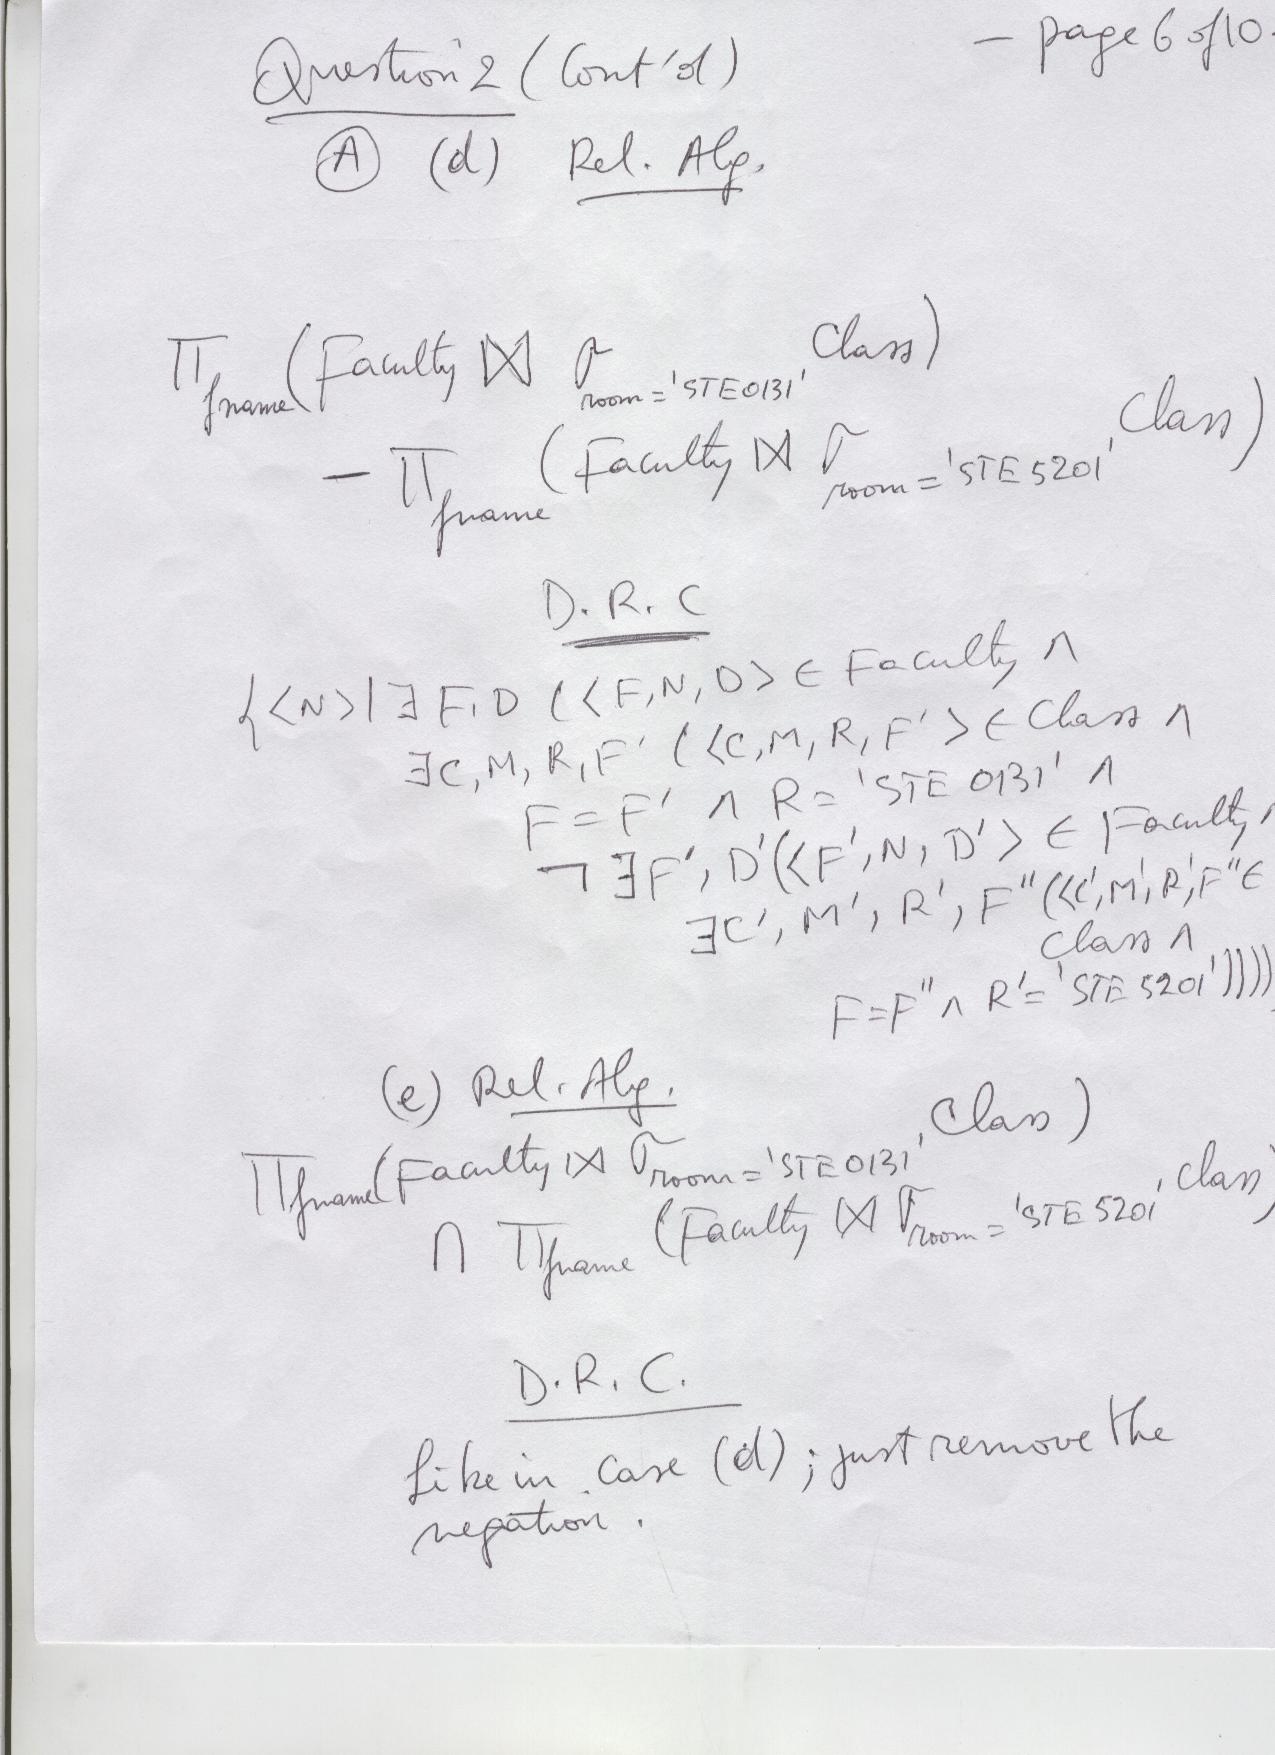 - page 6 of 10 -
Question 2 (Cont'd)
(A) (d) Rel. Alg.
Π fname (Faculty ⋈ σ room = 'STE0131' Class)
- Π fname (Faculty ⋈ σ room = 'STE 5201' Class)
D.R.C
{<N>|∃F,D (<F,N,D> ∈ Faculty ∧
∃C,M,R,F' (<C,M,R,F'> ∈ Class ∧
F=F' ∧ R='STE 0131' ∧
¬∃F',D'(<F',N,D'> ∈ Faculty ∧
∃C',M',R',F"(<C',M',R',F"∈
Class ∧
F=F" ∧ R'='STE 5201'))))
(e) Rel. Alg.
Π fname (Faculty ⋈ σ room = 'STE0131' Class)
∩ Π fname (Faculty ⋈ σ room = 'STE 5201' Class)
D.R.C.
Like in case (d); just remove the
negation.